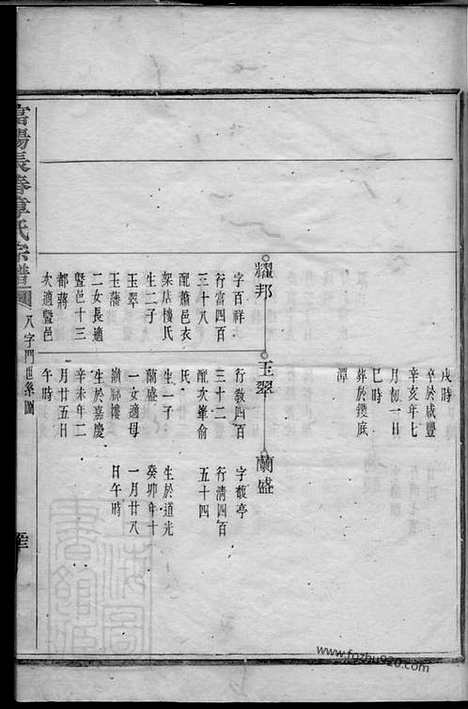 戌時
辛於咸豐
辛亥年七
月初一日
巳時
葬於鑊底
潭
耀邦
玉翠
蘭盛
字百祥
行富四百
三十八
配蕭邑衣
架店樓氏
生二子
玉翠
玉藩
二女長適
暨邑十三
都蔣
次適暨邑
行敬四百
三十二
配次峰俞
氏
生一子
蘭盛
一女適母
嶺樓
生於嘉慶
辛未年二
月廿五日
午時
字馥亭
行清四百
五十四
生於道光
癸卯年十
一月廿八
日午時
富陽長春章氏宗譜
八字門世系圖
www.fozhu920.com